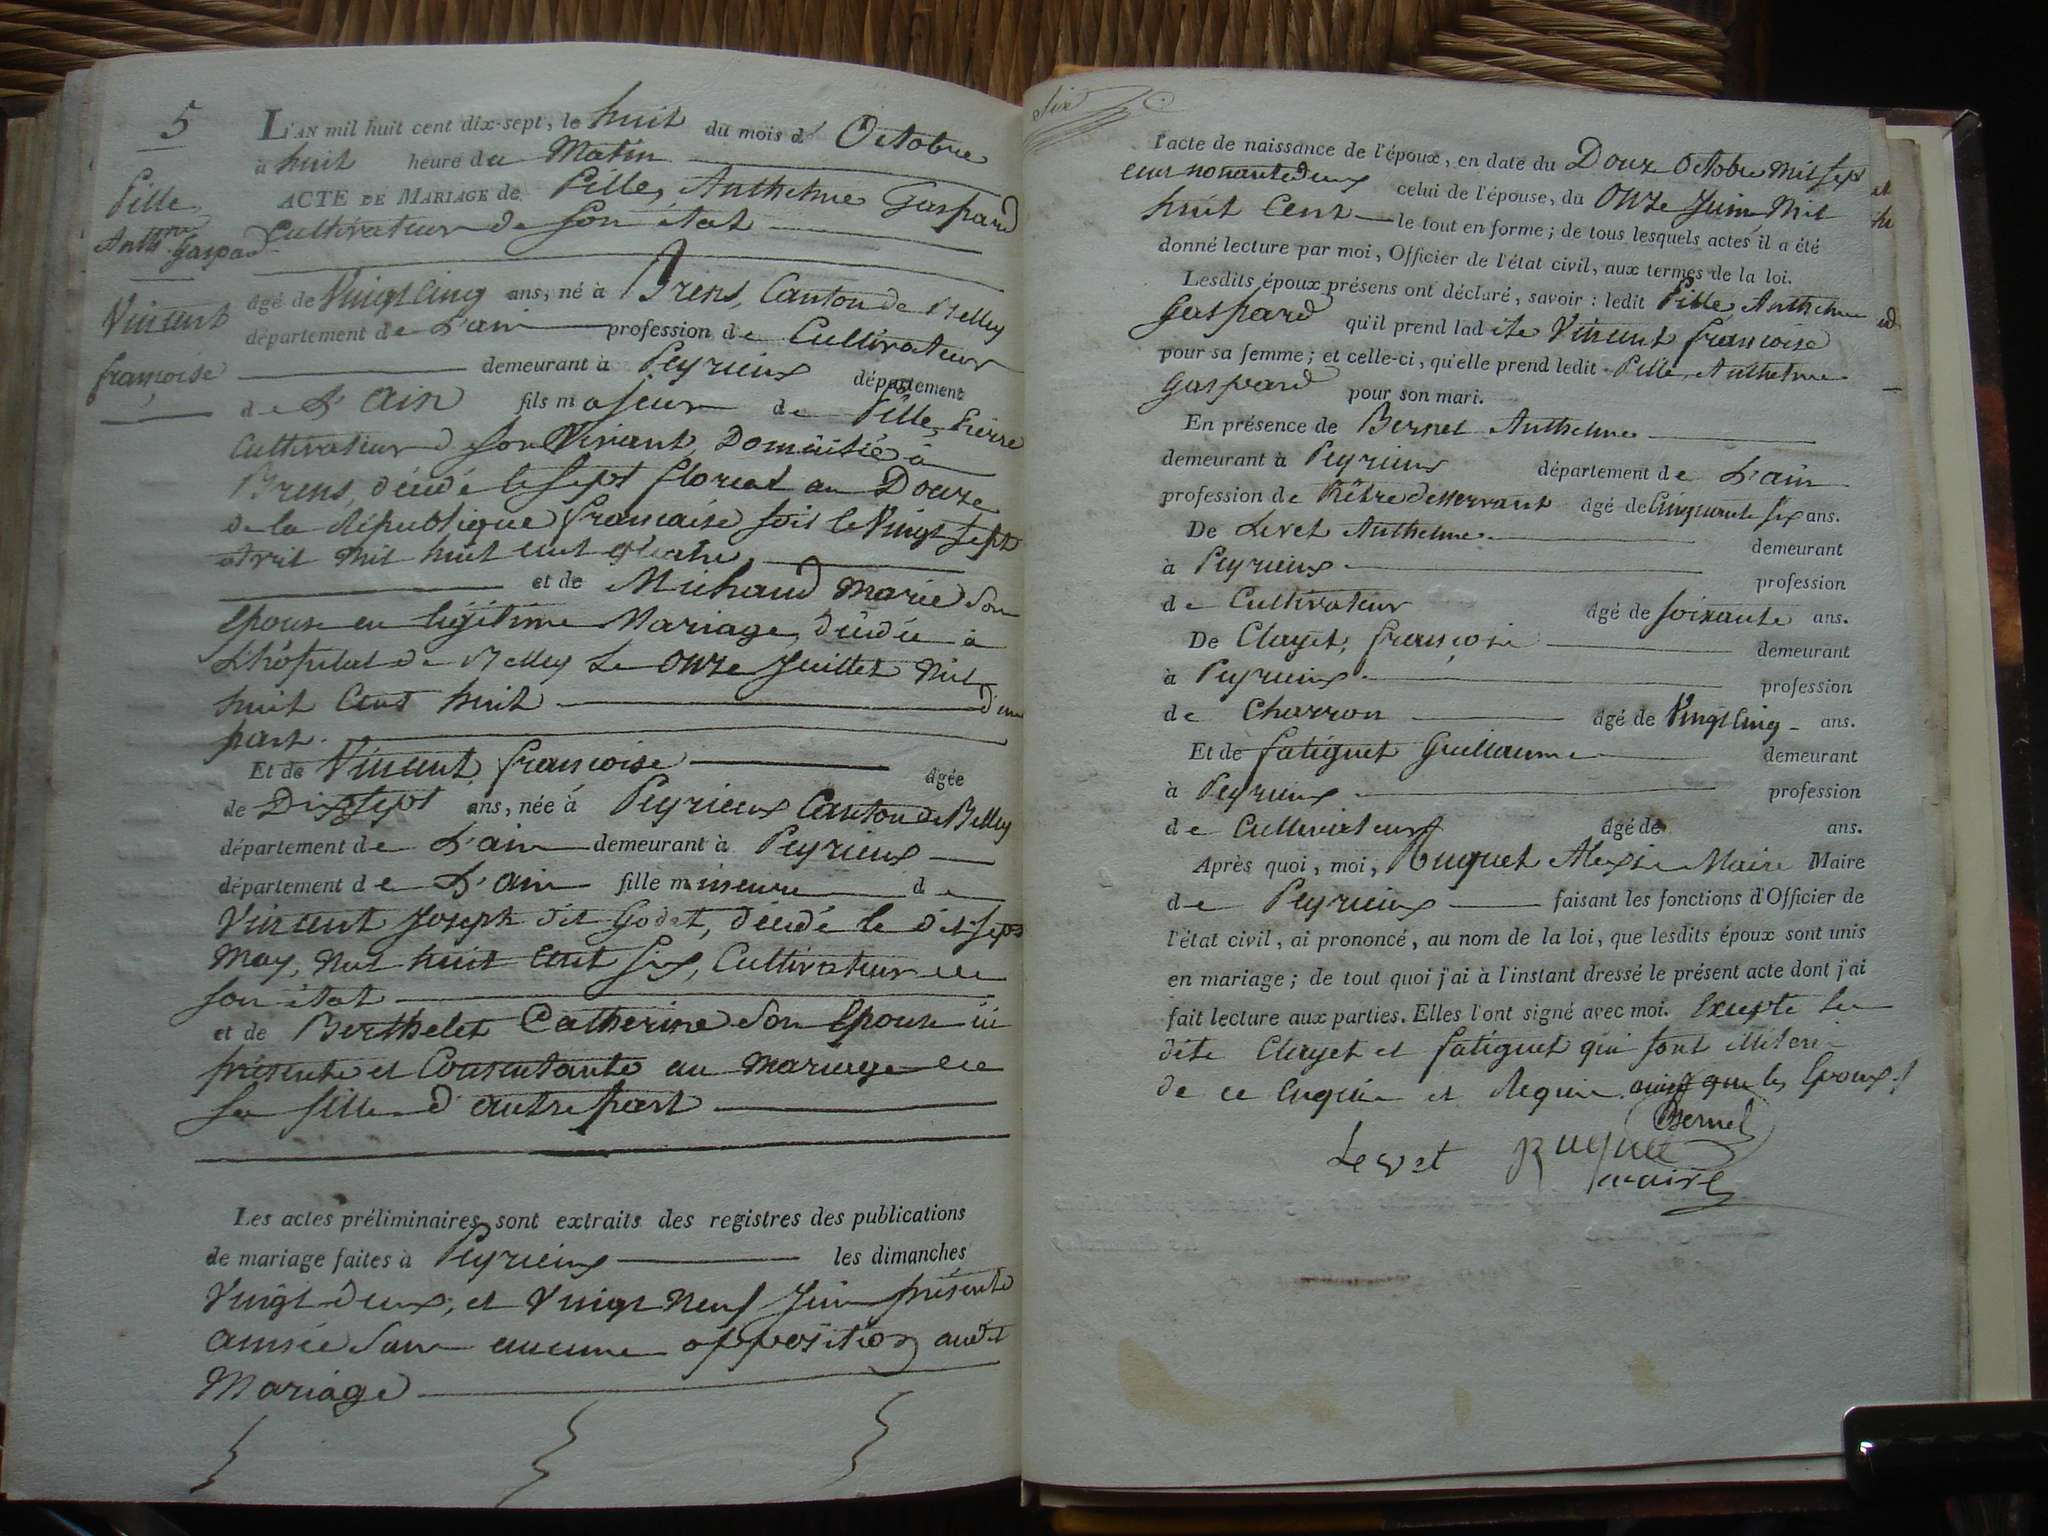 5
L'AN mil huit cent dix-sept, le huit du mois d' Octobre
à huit heure du Matin
Pille,
Anthme Gaspard
ACTE DE MARIAGE de Pille, Anthelme Gaspard
Cultivateur de son état
Vincent
françoise
âgé de Vingt Cinq ans, né à Brens, Canton de Belley
département de L'ain profession de Cultivateur
demeurant à Peyrieux département
de L'ain fils majeur de Pille, Pierre
Cultivateur de son Vivant, Domicilié à
Brens, décédé le sept floréal an Douze
de la république française soit le Vingt sept
avril mil huit cent quatre
et de Michaud Marie Son
Epouse en légitime Mariage, décédée à
L'hôpital de Belley Le Onze Juillet Mil
huit Cent huit d'une
part.
Et de Vincent françoise âgée
de Dix sept ans, née à Peyrieux Canton de Belley
département de L'ain demeurant à Peyrieux
département de L'ain fille mineure de
Vincent Joseph dit Godet, décédé le dix sept
May, mil huit Cent six, Cultivateur de
son état
et de Berthelet Catherine Son Epouse ici
présente et Consentante au mariage de
Sa fille d'autre part
Les actes préliminaires sont extraits des registres des publications
de mariage faites à Peyrieux les dimanches
Vingt deux, et Vingt Neuf Juin présente
année Sans aucune opposition audit
Mariage
Six
l'acte de naissance de l'époux, en date du Douze Octobre Mil sept
cent nonante deux celui de l'épouse, du Onze Juin Mil
huit Cent le tout en forme; de tous lesquels actes il a été
donné lecture par moi, Officier de l'état civil, aux termes de la loi.
Lesdits époux présens ont déclaré, savoir : ledit Pille, Anthelme
Gaspard qu'il prend ladite Vincent françoise
pour sa femme; et celle-ci, qu'elle prend ledit Pille, Anthelme
Gaspard pour son mari.
En présence de Bernet Anthelme
demeurant à Peyrieux département de L'ain
profession de Prêtre desservant âgé de Cinquante six ans.
De Levet Anthelme demeurant
à Peyrieux profession
de Cultivateur âgé de soixante ans.
De Clayet, françois demeurant
à Peyrieux profession
de Charron âgé de Vingt Cinq ans.
Et de fatiguet Guillaume demeurant
à Peyrieux profession
de Cultivateur âgé de ans.
Après quoi, moi, Alexis Maire Maire
de Peyrieux faisant les fonctions d'Officier de
l'état civil, ai prononcé, au nom de la loi, que lesdits époux sont unis
en mariage; de tout quoi j'ai à l'instant dressé le présent acte dont j'ai
fait lecture aux parties. Elles l'ont signé avec moi. Excepté Les
dits Clayet et fatiguet qui sont illiteré
de ce Enquis et Requis ainsi que les Epoux
Bernet
Levet
maire